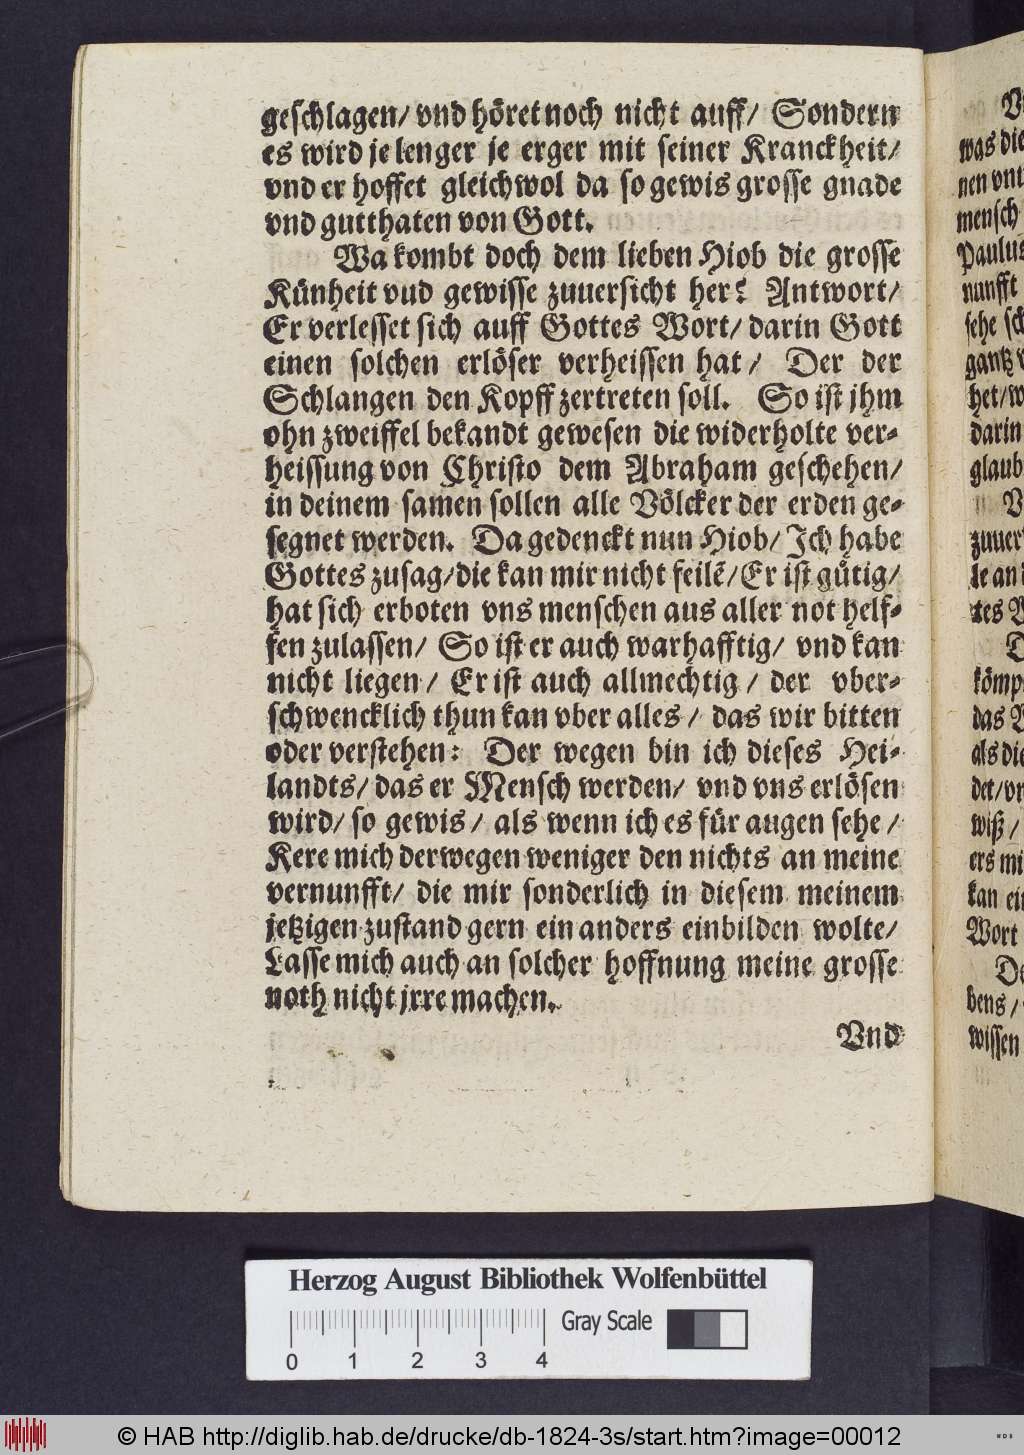 geschlagen/ vnd höret noch nicht auff/ Sondern
es wird je lenger je erger mit seiner Kranckheit/
vnd er hoffet gleichwol da so gewis grosse gnade
vnd gutthaten von Gott.
Wa kombt doch dem lieben Hiob die grosse
Künheit vud gewisse zuuersicht her? Antwort/
Er verlesset sich auff Gottes Wort/ darin Gott
einen solchen erlöser verheissen hat/ Der der
Schlangen den Kopff zertreten soll. So ist jhm
ohn zweiffel bekandt gewesen die widerholte ver-
heissung von Christo dem Abraham geschehen/
in deinem samen sollen alle Völcker der erden ge-
segnet werden. Da gedenckt nun Hiob/ Ich habe
Gottes zusag/ die kan mir nicht feilẽ/ Er ist gütig/
hat sich erboten vns menschen aus aller not helf-
fen zulassen/ So ist er auch warhafftig/ vnd kan
nicht liegen/ Er ist auch allmechtig/ der vber-
schwencklich thun kan vber alles/ das wir bitten
oder verstehen: Der wegen bin ich dieses Hei-
landts/ das er Mensch werden/ vnd vns erlösen
wird/ so gewis/ als wenn ich es für augen sehe/
Kere mich derwegen weniger den nichts an meine
vernunfft/ die mir sonderlich in diesem meinem
jetzigen zustand gern ein anders einbilden wolte/
Lasse mich auch an solcher hoffnung meine grosse
noth nicht jrre machen.
Vnd
was die
nen vnt
mensch
Paulus
nunfft
sehe sch
gantz v
het/ w
darin
glaub
V
zuuer
le and
tes W
D
kömp
das W
als die
det/ vn
wiß/
ers mi
kan ein
Wort
De
bens/
wissen
Herzog August Bibliothek Wolfenbüttel
Gray Scale
0 1 2 3 4
© HAB http://diglib.hab.de/drucke/db-1824-3s/start.htm?image=00012
WDB